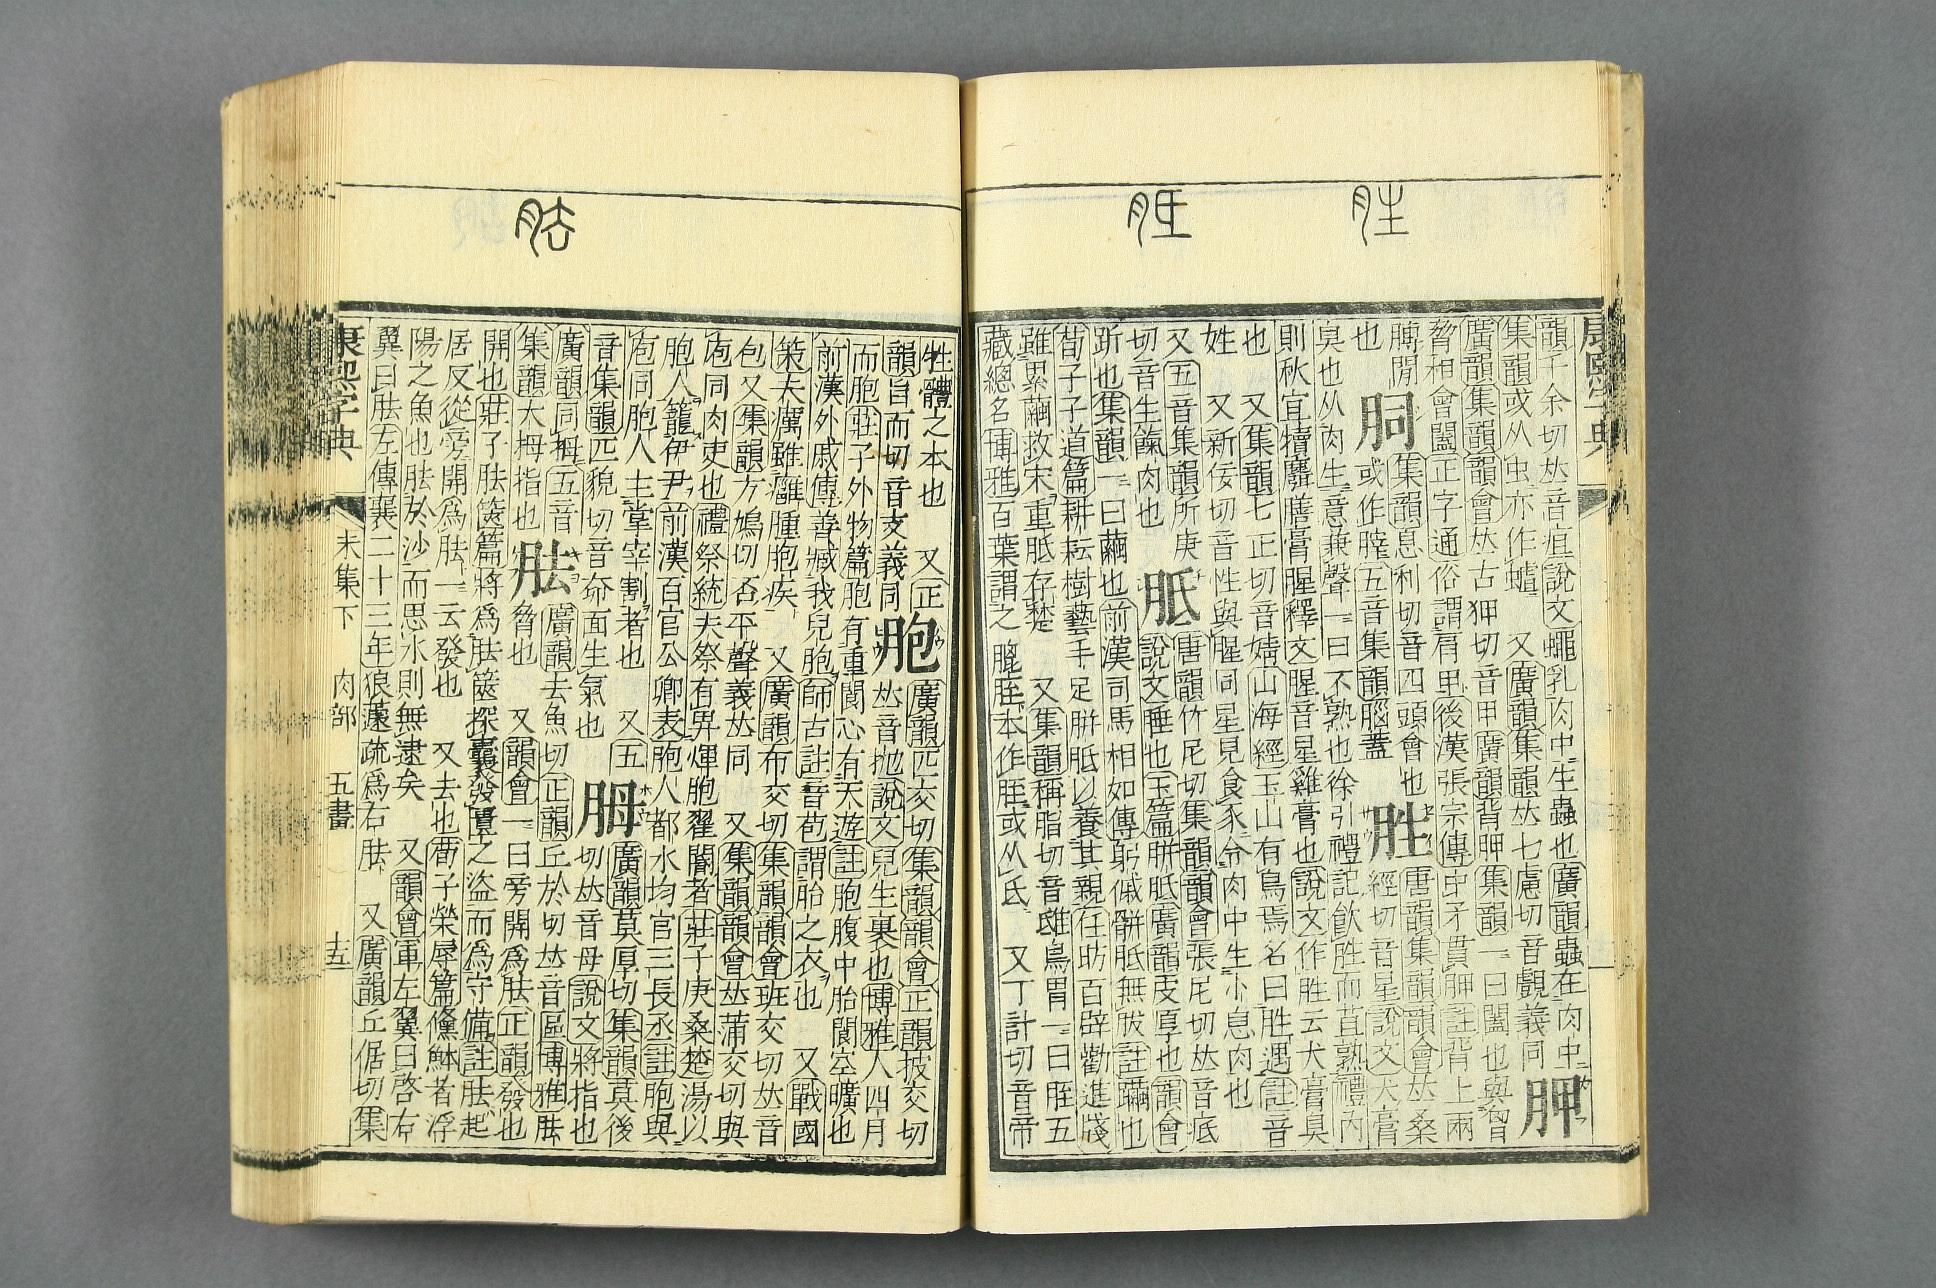 胜
胝
康熙字典
韻千余切𠀤音疽說文蠅乳肉中生蟲也廣韻蟲在肉中
集韻或从虫亦作蛆 又廣韻集韻𠀤七慮切音覰義同
胛
廣韻集韻韻會𠀤古狎切音甲廣韻背胛集韻一曰闔也與匈
脅相會闔正字通俗謂肩甲後漢張宗傳中矛貫胛註背上兩
膊閒
集韻息利切音四頭會也
胜
唐韻集韻韻會𠀤桑
也
或作 五音集韻腦蓋
經切音星說文犬膏
臭也从肉生意兼聲一曰不熟也徐引禮記飮胜而苴熟禮內
則秋宜犢麛膳膏腥釋文腥音星雞膏也說文作胜云犬膏臭
也 又集韻七正切音婧山海經玉山有鳥焉名曰胜遇註音
姓 又新佞切音性與腥同星見食豕令肉中生小息肉也
又五音集韻所庚
切音生 肉也
胝
唐韻竹尼切集韻韻會張尼切𠀤音疷
說文腄也玉篇胼胝廣韻皮厚也韻會
斫也集韻一曰繭也前漢司馬相如傳躬傶骿胝無胈註躪也
荀子子道篇耕耘樹藝手足胼胝以養其親任昉百辟勸進牋
雖累繭救宋重胝存楚 又集韻稱脂切音鴟鳥胃一曰胵五
藏總名博雅百葉謂之膍胵本作胵或从氏 又丁計切音帝
胠
牲體之本也 又正
韻旨而切音支義同
胞
廣韻匹交切集韻韻會正韻披交切
𠀤音抛說文兒生裹也博雅人四月
而胞莊子外物篇胞有重閬心有天遊註胞腹中胎閬空曠也
前漢外戚傳善臧我兒胞師古註音苞謂胎之衣也 又戰國
策夫癘雖癰腫胞疾 又廣韻布交切集韻韻會班交切𠀤音
包又集韻方鳩切否平聲義𠀤同 又集韻韻會𠀤蒲交切與
庖同肉吏也禮祭統夫祭有畀煇胞翟閽者莊子庚桑楚湯以
胞人籠伊尹前漢百官公卿表胞人都水均官三長丞註胞與
庖同胞人主堂宰割者也 又五
音集韻匹貌切音奅面生氣也
胟
廣韻莫厚切集韻莫後
切𠀤音母說文將指也
廣韻同拇五音
集韻大拇指也
胠
廣韻去魚切正韻丘於切𠀤音區博雅胠
脅也 又韻會一曰旁開爲胠正韻發也
開也莊子胠篋篇將爲胠篋探囊發匱之盜而爲守備註胠起
居反從旁開爲胠一云發也 又去也荀子榮辱篇鯈䱁者浮
陽之魚也胠於沙而思水則無逮矣 又韻會軍左翼曰啓右
翼曰胠左傳襄二十三年狼蘧疏爲右胠 又廣韻丘倨切集
康熙字典
未集下 肉部 五畫
十五